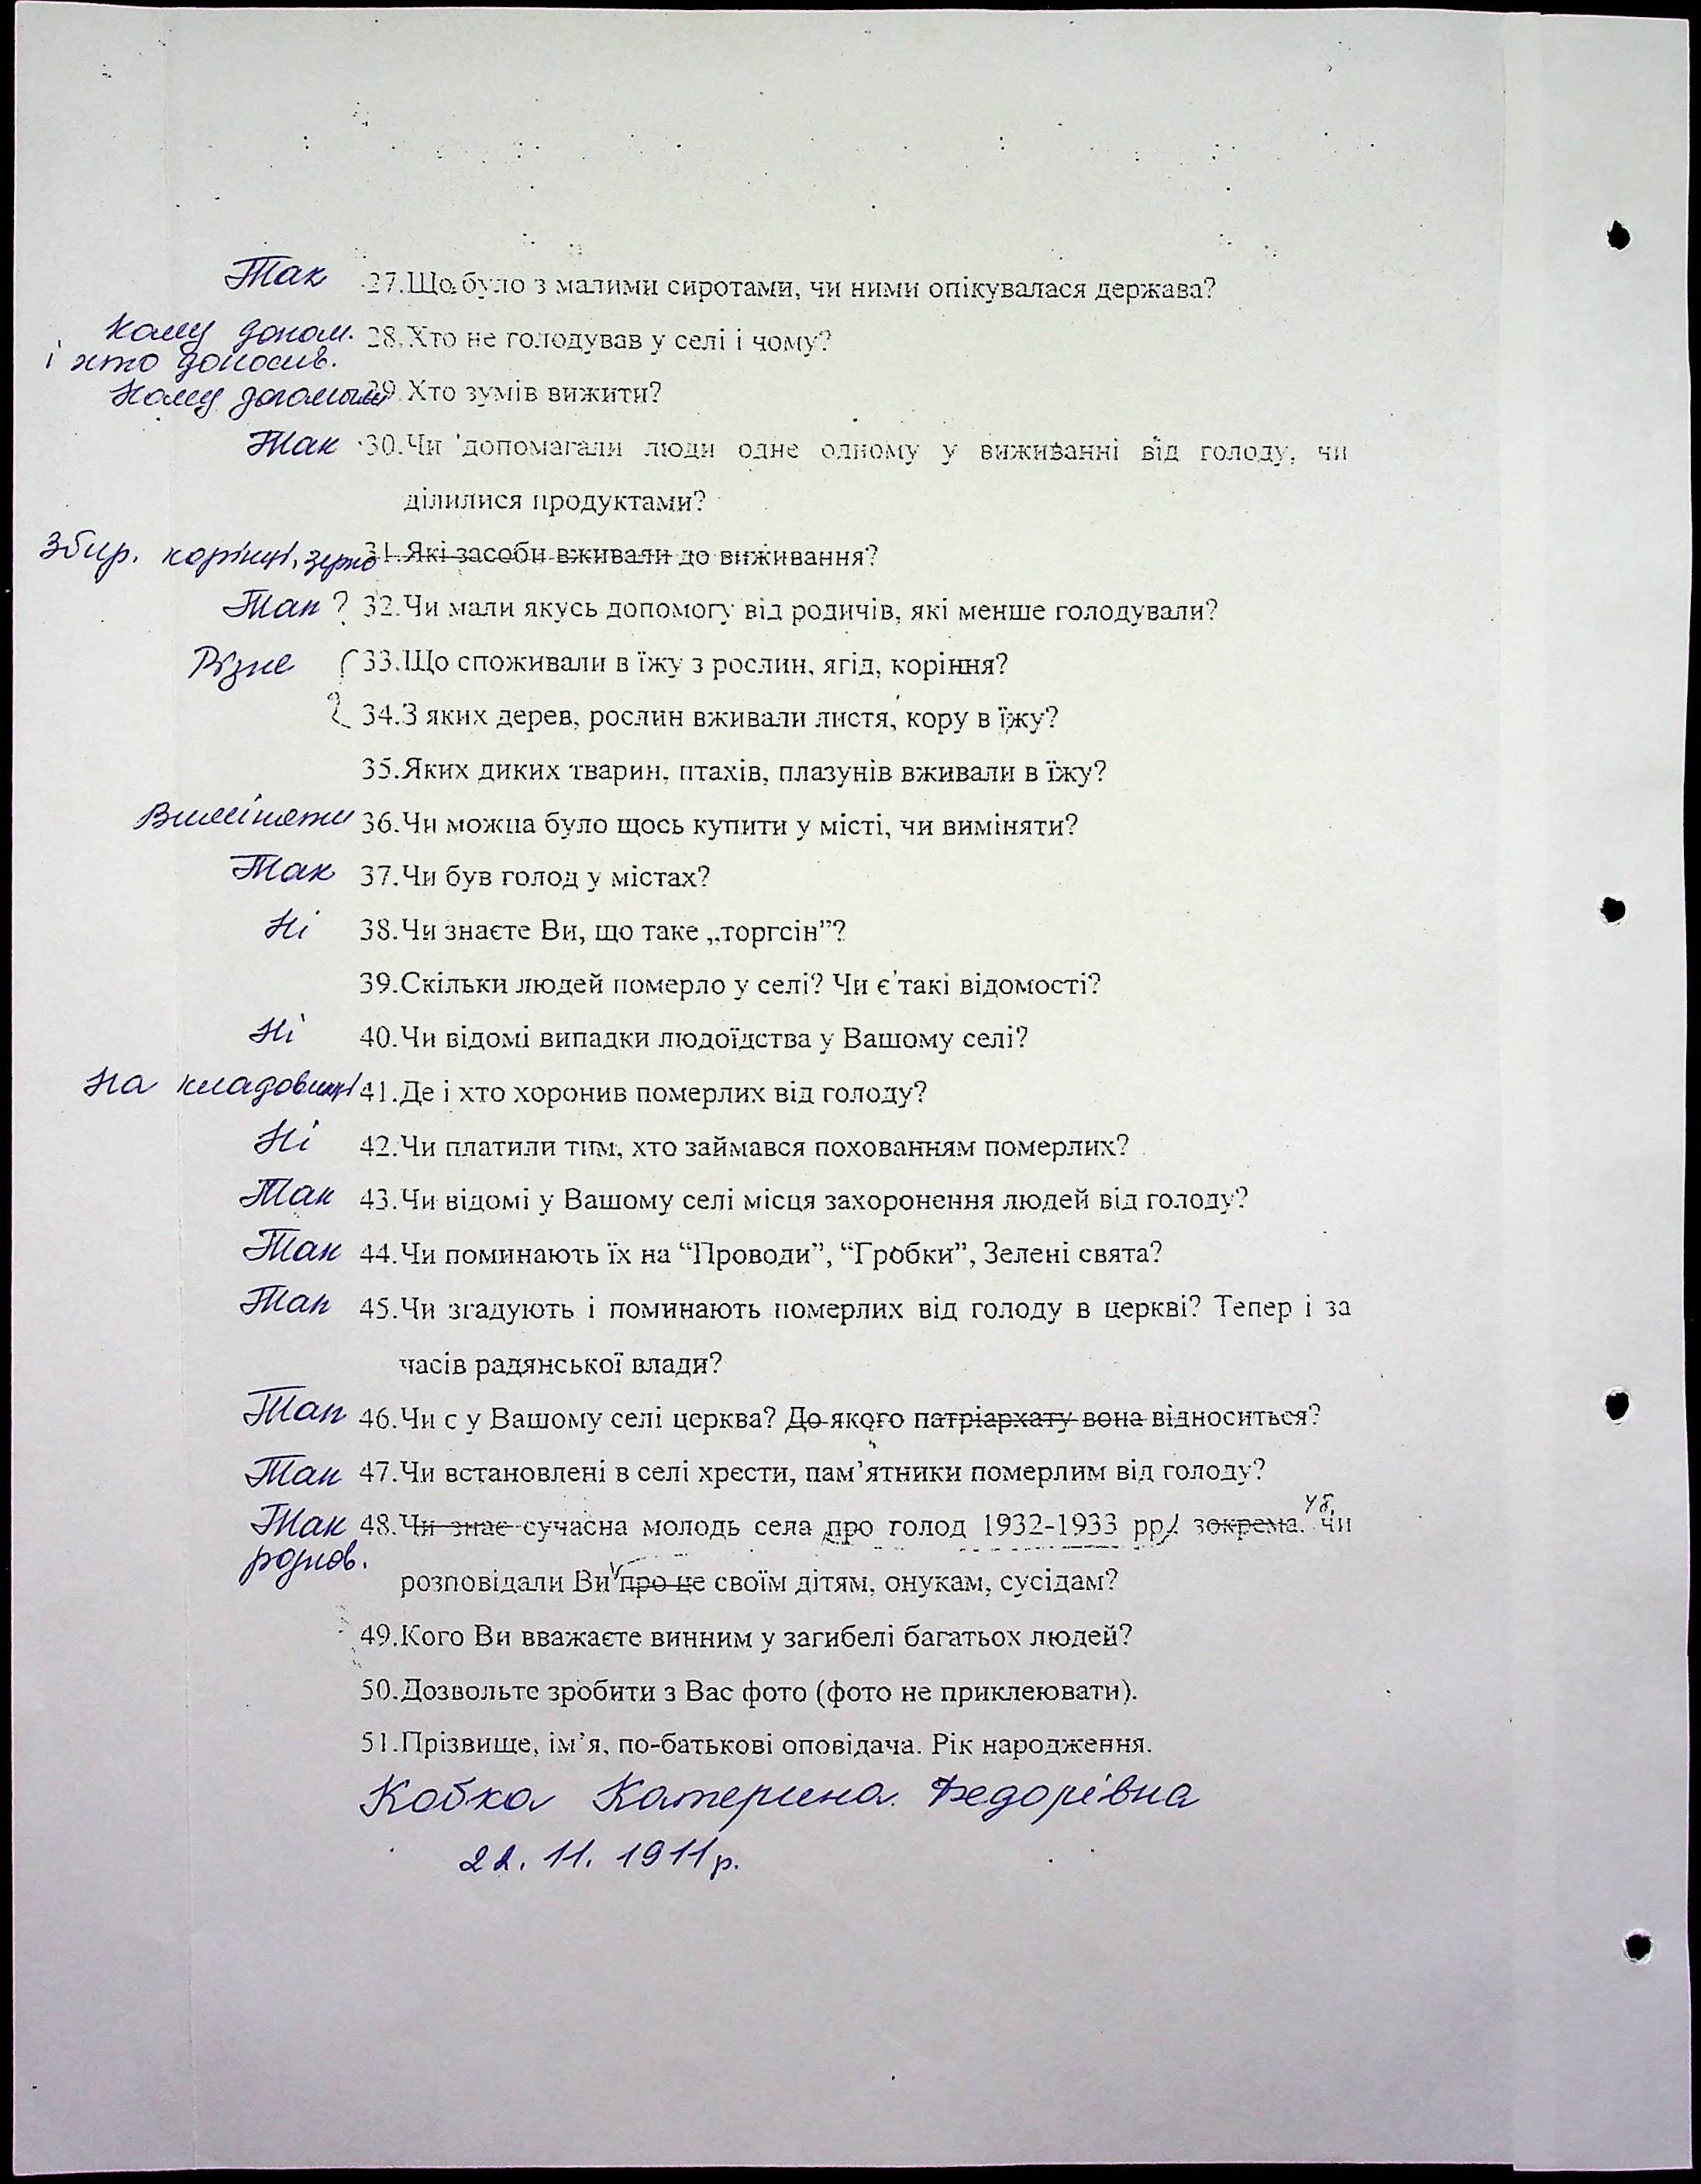 Так 27.Що було з малими сиротами, чи ними опікувалася держава?
Кому допом. 28.Хто не голодував у селі і чому?
і хто доносив.
Кому допомогли 29.Хто зумів вижити?
Так 30.Чи допомагали люди одне одному у виживанні від голоду, чи
ділилися продуктами?
Збир. корінці, зерно 31.Які засоби вживали до виживання?
Так ? 32.Чи мали якусь допомогу від родичів, які менше голодували?
Різне 33.Що споживали в їжу з рослин, ягід, коріння?
34.З яких дерев, рослин вживали листя, кору в їжу?
35.Яких диких тварин, птахів, плазунів вживали в їжу?
Виміняти 36.Чи можна було щось купити у місті, чи виміняти?
Так 37.Чи був голод у містах?
Ні 38.Чи знаєте Ви, що таке „торгсін”?
39.Скільки людей померло у селі? Чи є такі відомості?
Ні 40.Чи відомі випадки людоїдства у Вашому селі?
На кладовищі 41.Де і хто хоронив померлих від голоду?
Ні 42.Чи платили тим, хто займався похованням померлих?
Так 43.Чи відомі у Вашому селі місця захоронення людей від голоду?
Так 44.Чи поминають їх на “Проводи”, “Гробки”, Зелені свята?
Так 45.Чи згадують і поминають померлих від голоду в церкві? Тепер і за
часів радянської влади?
Так 46.Чи є у Вашому селі церква? До якого патріархату вона відноситься?
Так 47.Чи встановлені в селі хрести, пам’ятники померлим від голоду?
Так 48.Чи знає сучасна молодь села про голод 1932-1933 рр. зокрема, чи
розпов.
розповідали Ви про це своїм дітям, онукам, сусідам?
49.Кого Ви вважаєте винним у загибелі багатьох людей?
50.Дозвольте зробити з Вас фото (фото не приклеювати).
51.Прізвище, ім’я, по-батькові оповідача. Рік народження.
Кобка Катерина Федорівна
22. 11. 1911р.